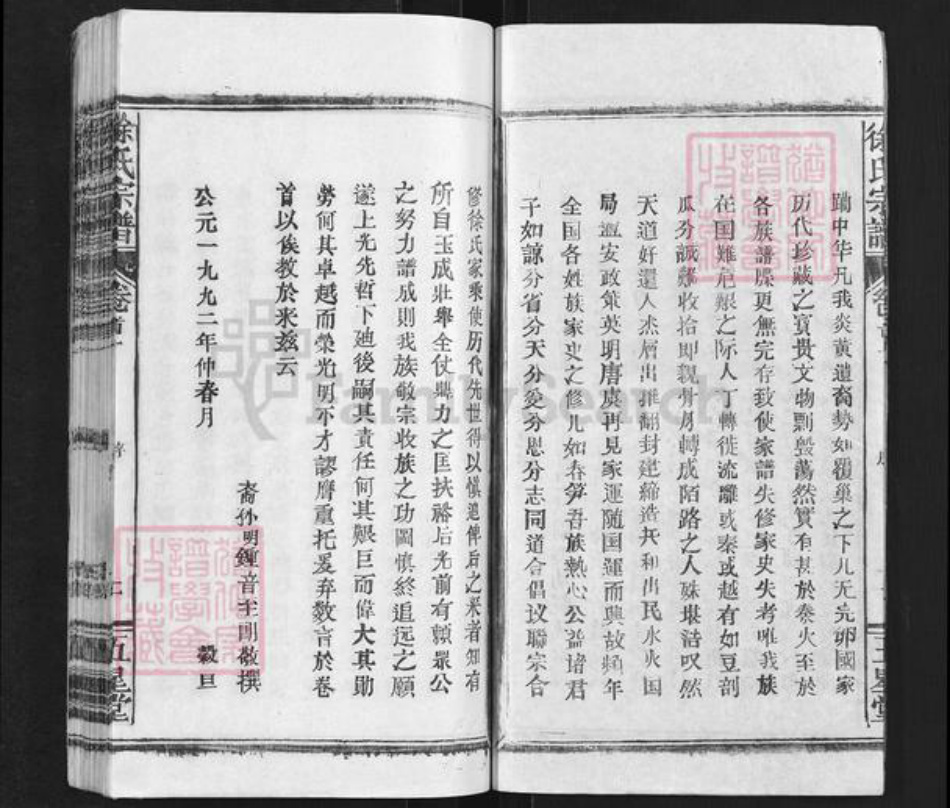 徐氏宗譜
卷首
序
五星堂
蹢中华凡我炎黄遺裔勢如覆巢之下几无完卵國家
历代珍藏之寳贵文物剽毀蕩然實有甚於秦火至於
各族譜牒更無完存致使家譜失修家史失考唯我族
在国難危艱之际人丁轉徙流離或秦或越有如豆剖
瓜分誠難收拾即親骨肉轉成陌路之人殊堪浩叹然
天道好還人杰層出推翻封建締造共和出民水火国
局𥁕安政策英明唐虞再見家運随国運而興故頻年
全国各姓族家史之修儿如春笋吾族熱心公益诸君
子如諒分省分天分爱分恩分志同道合倡议聯宗合
修徐氏家乘使历代先世得以慎追俾后之来者知有
所自玉成壯舉全仗鼎力之匡扶裕后光前有賴眾公
之努力譜成則我族敬宗收族之功圖慎終追远之願
遂上光先哲下廸後嗣其責任何其艱巨而偉大其勛
勞何其卓越而榮光明不才謬膺重托爰弃数言於卷
首以俟教於来兹云
公元一九九二年仲春月
裔孙明鍾音主剛敬撰
穀旦
徐氏宗譜
卷首
序
二
五星堂
FamilySearch